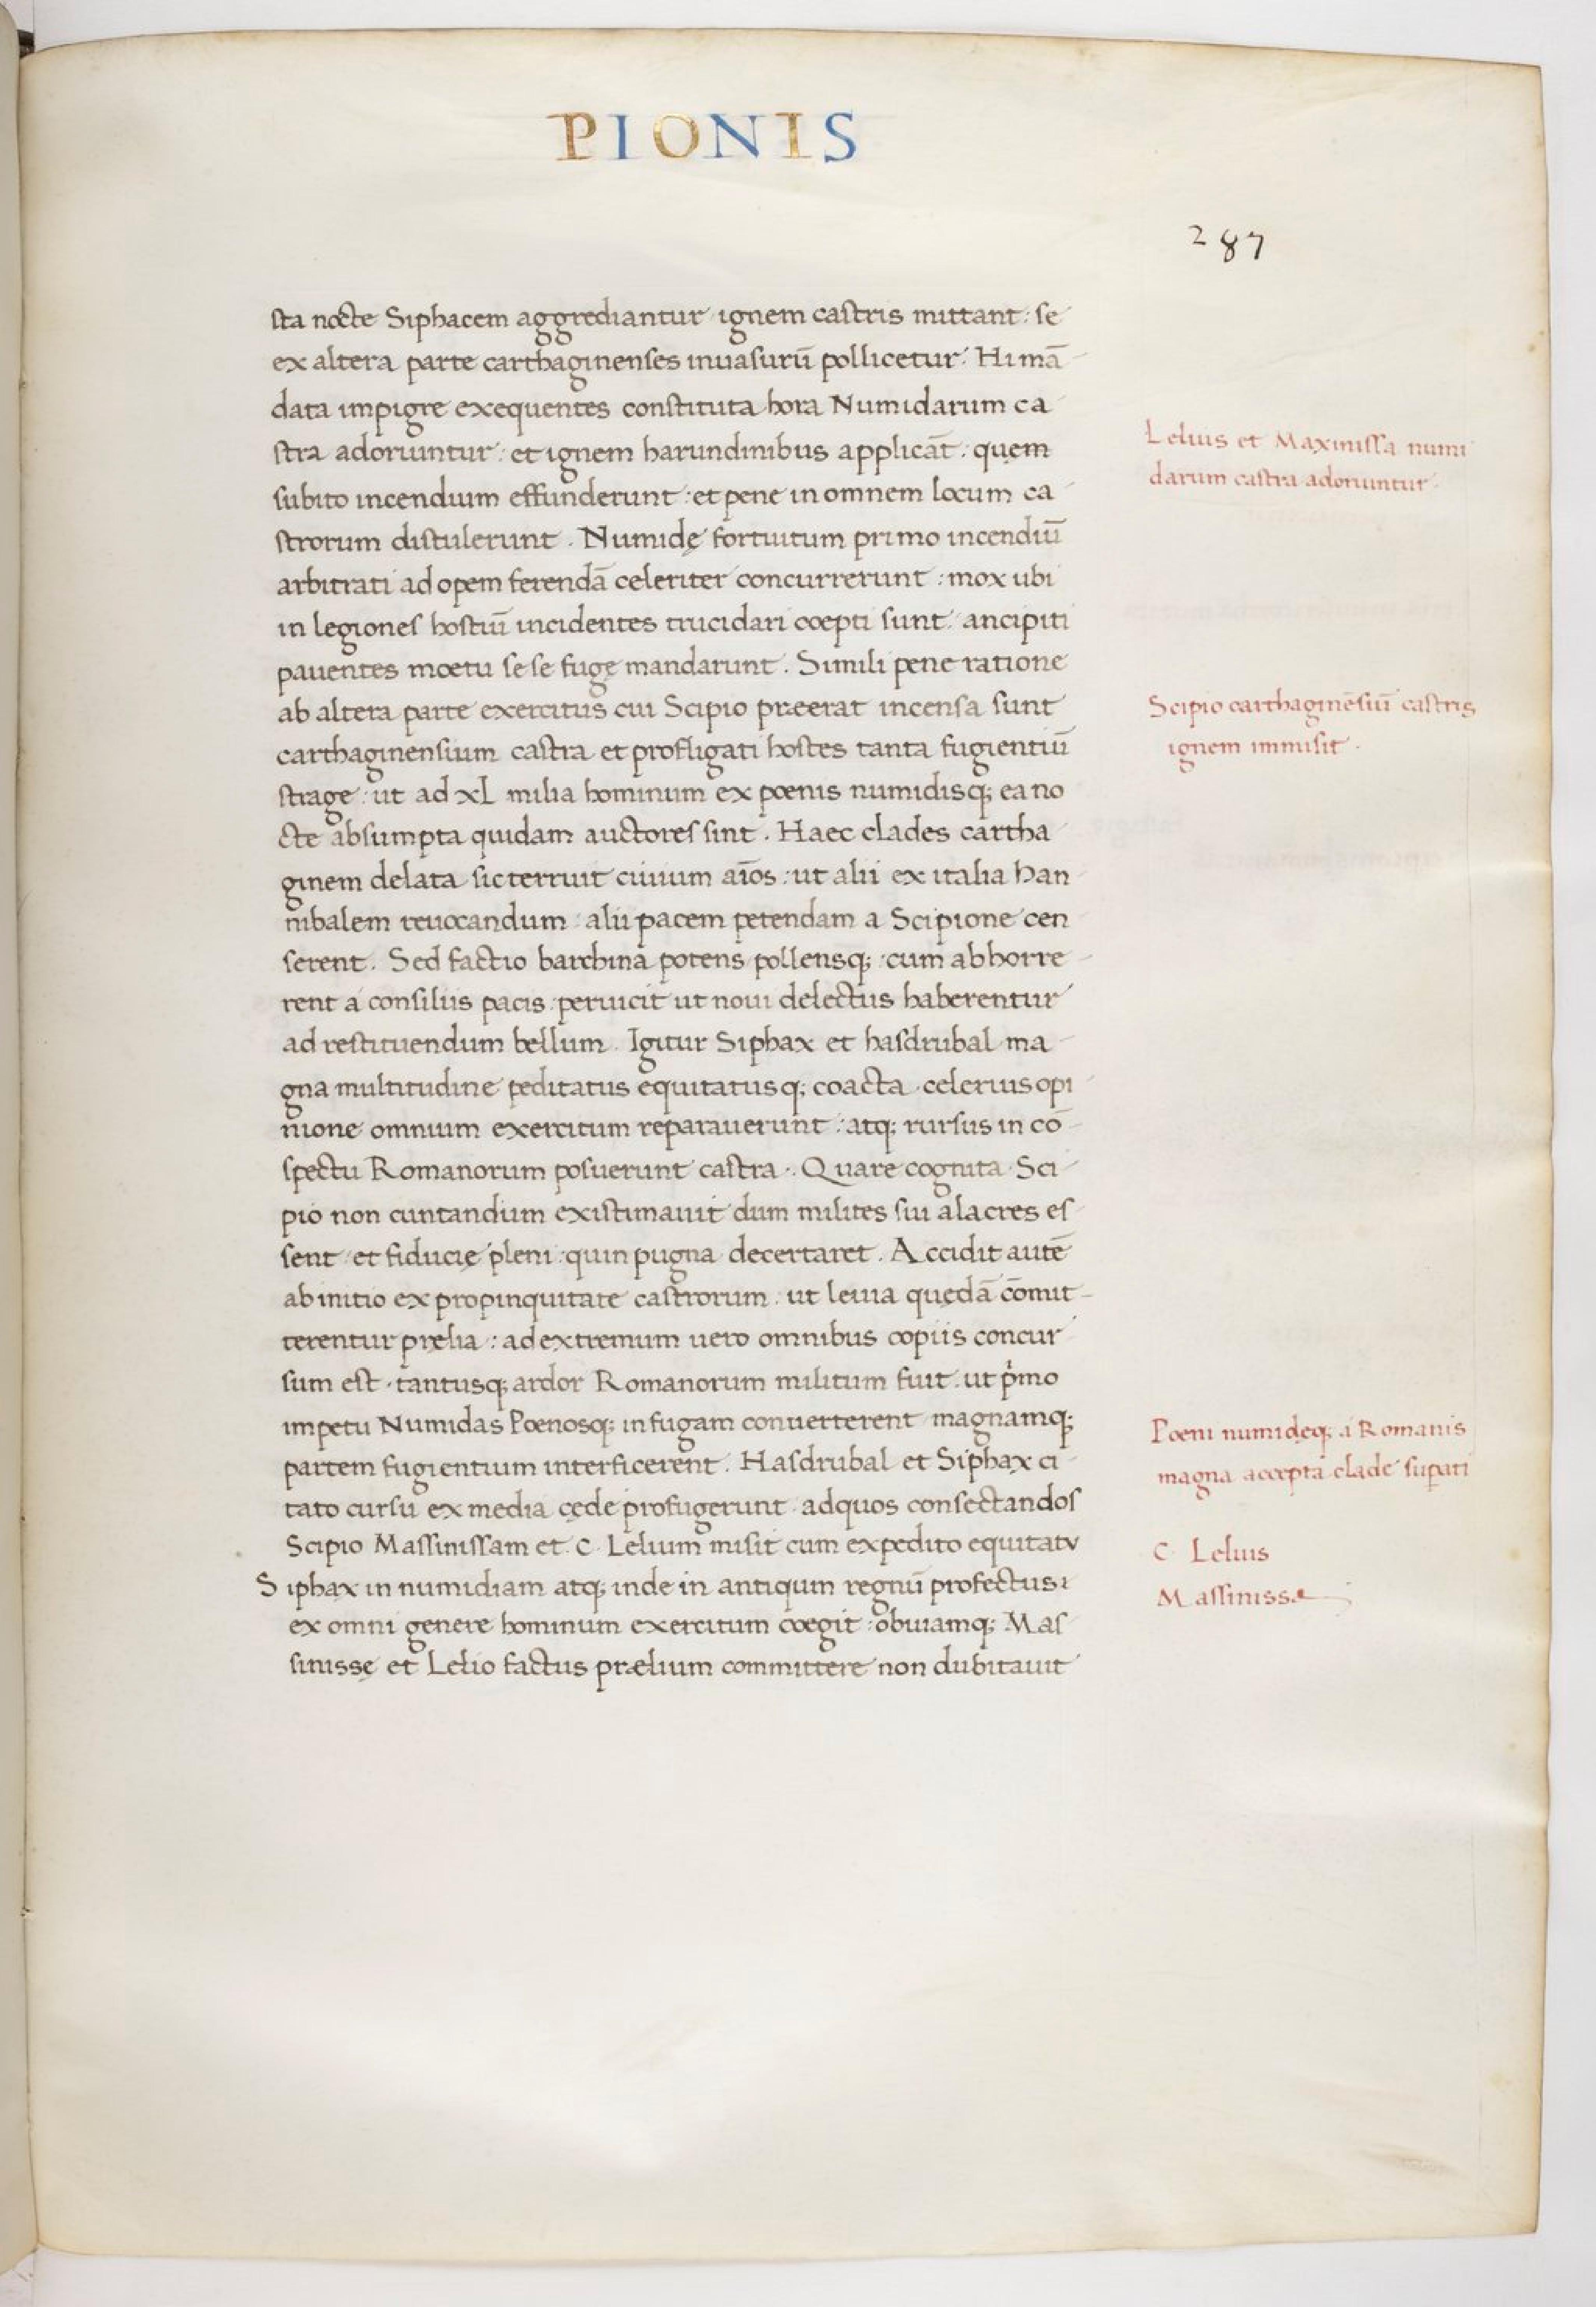 PIONIS
287
sta nocte Siphacem aggrediantur ignem castris mittant: se
ex altera parte carthaginenses inuasurū pollicetur. Hi mā
data impigre exequentes constituta hora Numidarum ca
stra adoriuntur: et ignem harundinibus applicāt: quem
subito incendium effunderunt: et pene in omnem locum ca
strorum distulerunt. Numidę fortuitum primo incendiū
arbitrati ad opem ferendā celeriter concurrerunt: mox ubi
in legiones hostiū incidentes trucidari coepti sunt: ancipiti
pauentes moetu sese fugę mandarunt. Simili pene ratione
ab altera parte exercitus cui Scipio præerat incensa sunt
carthaginensium castra et profligati hostes tanta fugientiū
strage: ut ad XL milia hominum ex poenis numidisq; ea no
cte absumpta quidam auctores sint. Haec clades cartha
ginem delata sic terruit ciuium aīos: ut alii ex italia Han
nibalem reuocandum: alii pacem petendam a Scipione cen
serent. Sed factio barchina potens pollensq; cum abhorre
rent a consiliis pacis peruicit ut noui delectus haberentur
ad restituendum bellum. Igitur Siphax et hasdrubal ma
gna multitudine peditatus equitatusq; coacta celerius opi
nione omnium exercitum reparauerunt: atq; rursus in cō
spectu Romanorum posuerunt castra. Quare cognita Sci
pio non cuntandum existimauit dum milites sui alacres es
sent et fiducię pleni: quin pugna decertaret. Accidit autē
ab initio ex propinquitate castrorum: ut leuia quędā cōmit
terentur pręlia: ad extremum uero omnibus copiis concur
sum est. tantusq; ardor Romanorum militum fuit. ut pímo
impetu Numidas Poenosq; in fugam conuerterent magnamq;
partem fugientium interficerent. Hasdrubal et Siphax ci
tato cursu ex media cęde profugerunt ad quos consectandos
Scipio Massinissam et C. Lelium misit cum expedito equitatv
Siphax in numidiam atq; inde in antiqum regnū profectus:
ex omni genere hominum exercitum coegit: obuiamq; Mas
sinissę et Lelio factus prælium committere non dubitauit
Lelius et Maxinissa numi
darum castra adoriuntur.
Scipio carthaginēsiū castris
ignem immisit.
Poeni numidęq; a Romanis
magna accepta clade supati
C. Lelius
Massinissa